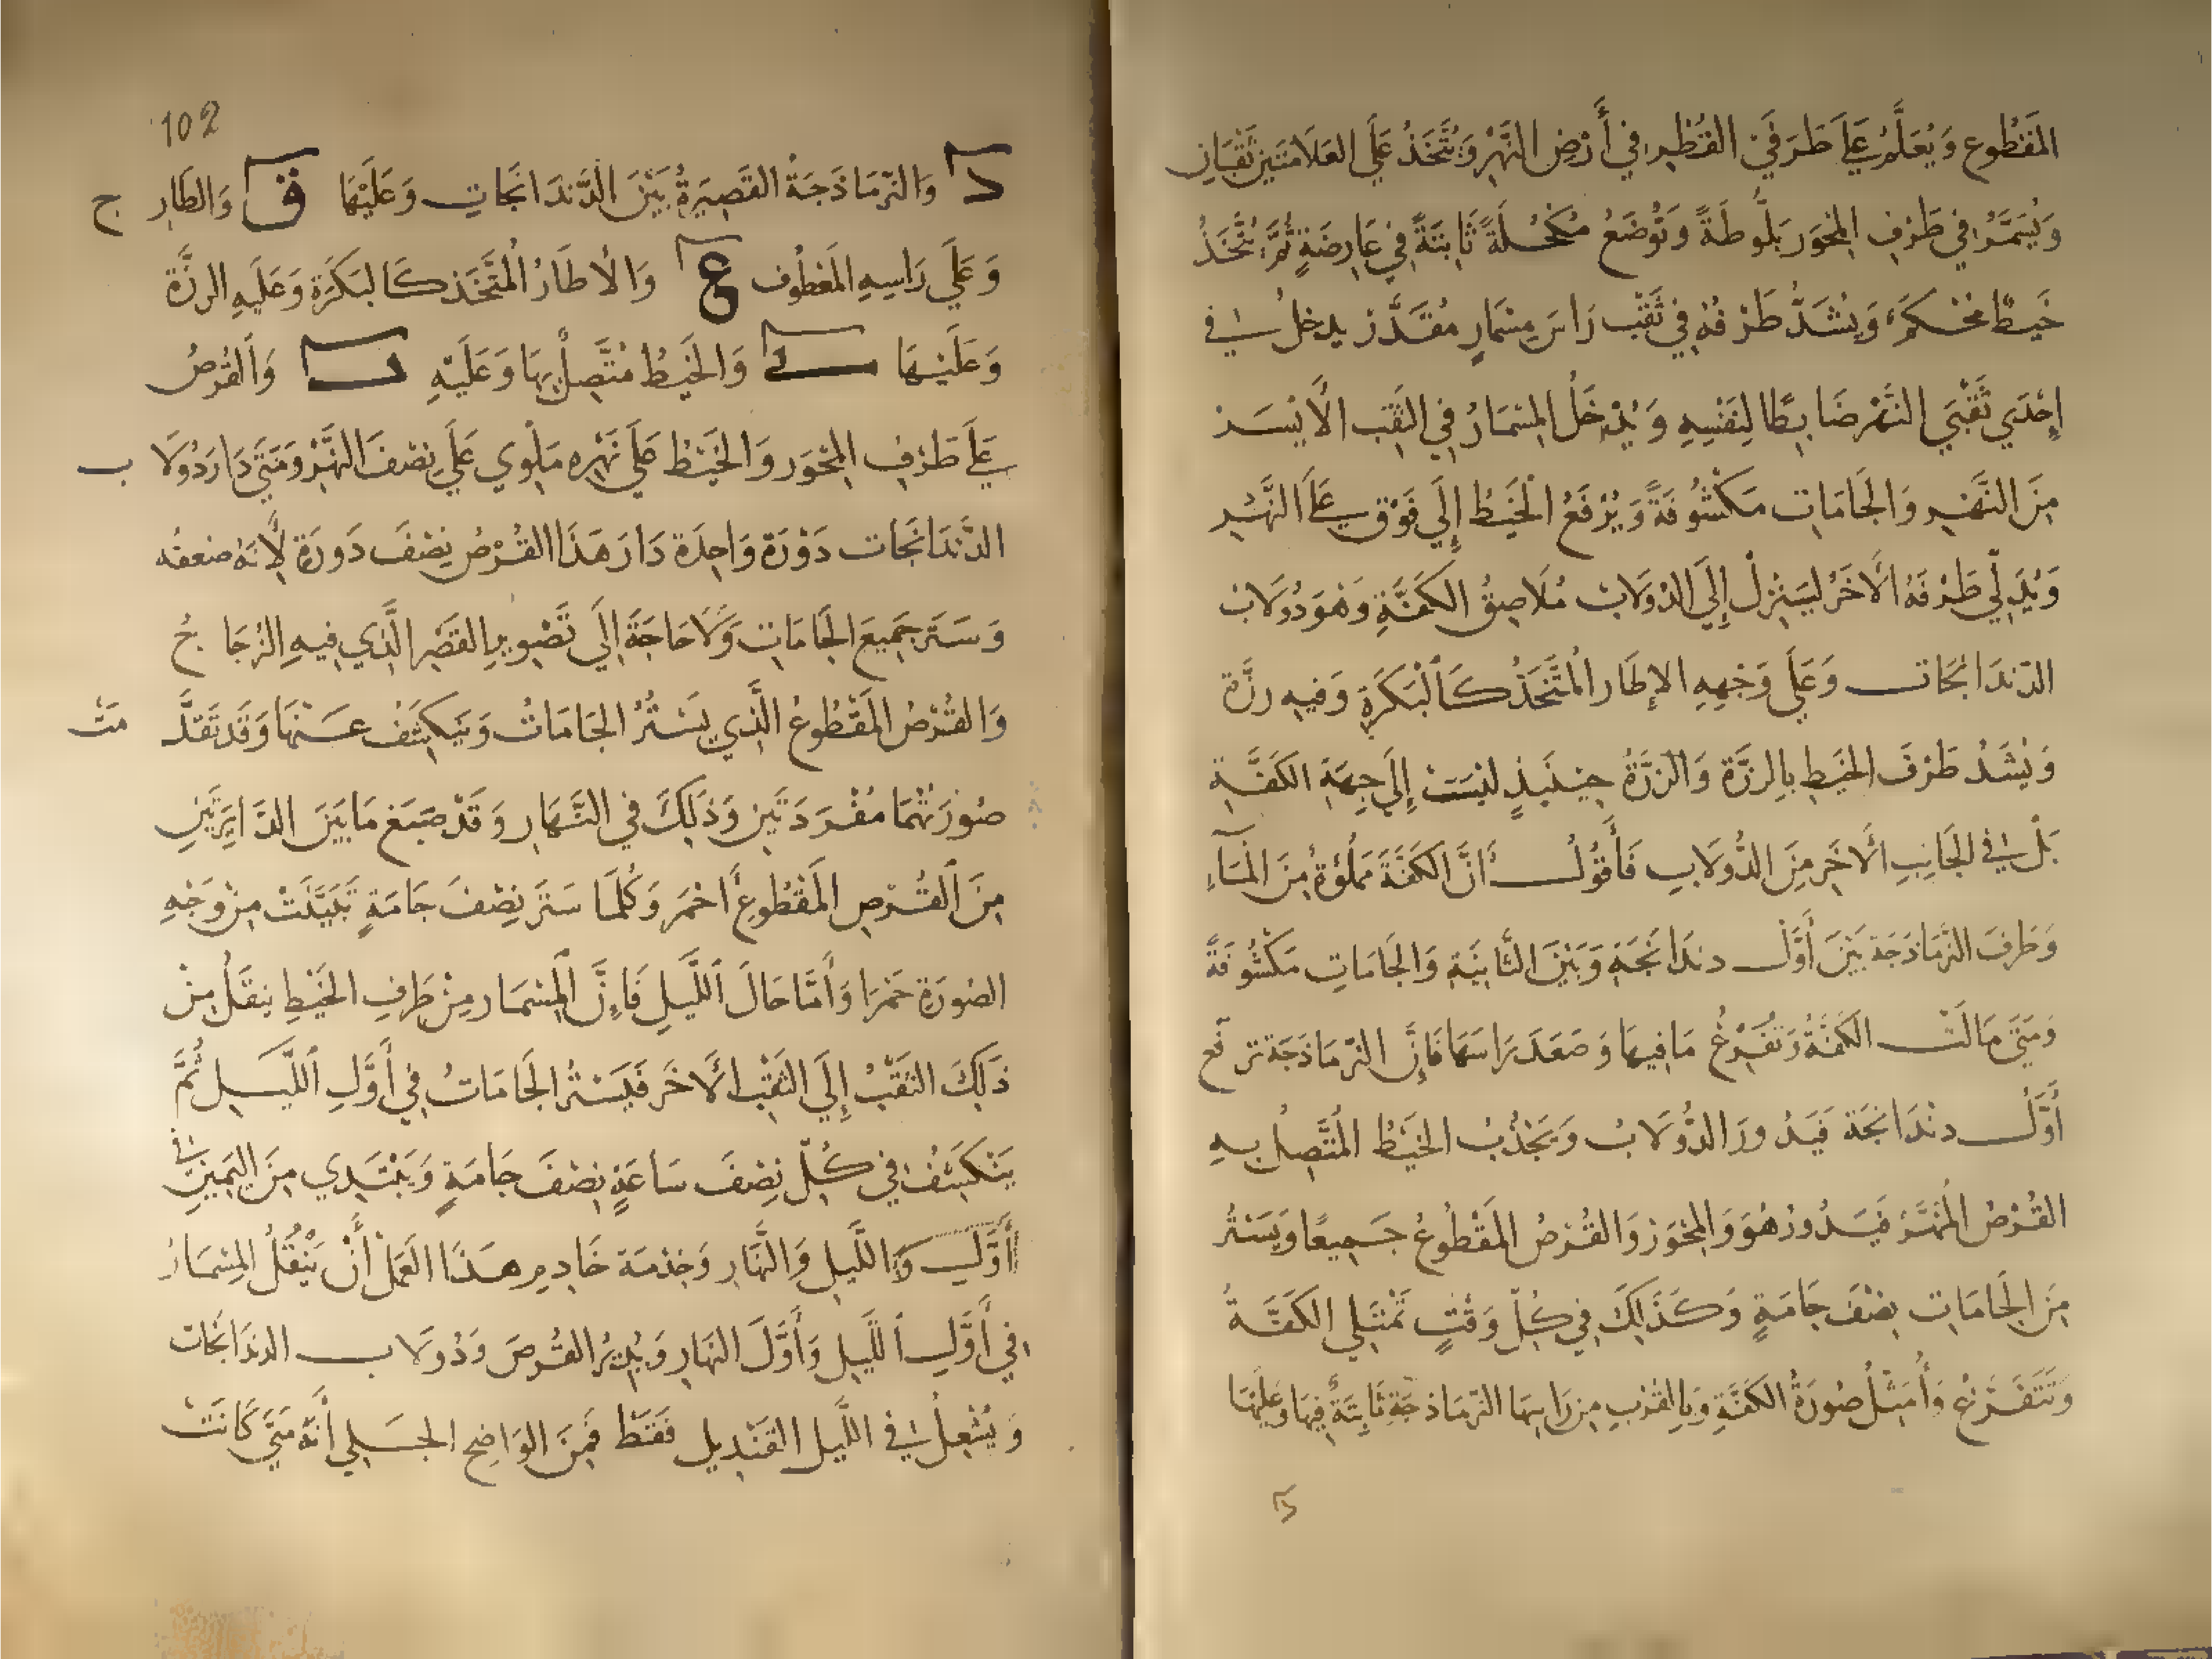 المَقْطُوع وَيُعَلَّمُ عَلَى طَرَفَيْ القُطْرِ فِي أَرْضِ النَّهْرِ وَيُتَّخَذُ عَلَي العَلَامَتَيْن ثَقْبَانِ
وَيُسَمَّرُ فِي طَرَفِ المِحْوَر بَلُّوطَةً وَتُوضَعُ مُكْحُلَةً ثَابِتَةً فِي عَارِضَةٍ ثُمَّ يُتَّخَذُ
خَيطٌ مُحْكَمٌ وَيُشَدُّ طَرْفُهُ فِي ثَقْبِ رَاسَ مِسْمَارٍ مُقَدَّرٌ يدخلُ في
إِحْدَي ثَقْبَي النَّهْر ضَابِطًا لِنَفْسِهِ وَيُدْخَلُ المِسْمَارُ فِي الثَّقْبِ الأَيْسَر
مِنَ النَّهْرِ وَالجَامَاتِ مَكْشُوفَةً وَيُرْفَعُ الخَيْطُ إِلَي فَوْق عَلَى النَّهْرِ
وَيُدَلِّي طَرْفَهُ الأَخَرُ لِيَنْزِلْ إِلَي الدُولَابْ مُلَاصِقُ الكَفَّةِ وَهُوَ دُولَابْ
الدَندَانجَات وَعَلَي وَجْهِهِ الإِطَار المُتَّخَذُ كَالبَكَرَةِ وَفِيهِ رزَّة
وَيُشَدْ طَرْفَ الخَيطِ بِالرزَّة وَالرزَّةُ حِينَئِذٍ لَيْسَتْ إِلَي جِهَةِ الكَفَّةِ
بَلْ في الجَانِبِ الأَخَر مِنَ الدُّولَابِ فَأَقُولُ أَنَّ الكَفَّةَ مَمْلُوَةٌ مِنَ المَآءِ
وَطَرفَ النَّرمَاذجَة بَيْنَ أَوَّل دندَانْجَة وَبَيْنَ الثَانِيَةِ وَالجَامَاتِ مَكْشُوفَةً
وَمَتَي مَالَتْ الكَفَّةُ وَتُفَرّغُ مَا فِيهَا وَصَعَدَ رَاسهَا فَإِنَّ النّرمَاذجَة ترفع
أَوَّلُ دنْدَانجَة فَيَدُورَ الدُّولَابُ وَيَجْذُبُ الخَيْطُ المُتَّصِلُ بِهِ
القُرْصُ المُنَهَّر فَيَدُورُ هُوَ وَالمِحْوَرُ وَالقُرْصُ المَقْطُوعُ جَمِيعًا وَيَسْتُر
مِنَ الجَامَاتِ نِصْفَ جَامَةٍ وَكَذَلِكَ فِي كُلّ وَقْتٍ تَمْتَلِي الكَفَّةُ
وَتَتَفَرَّغُ وَأُمَثِّلُ صُورَةُ الكَفَّةِ وَبِالقُرْبِ مِن رَاسِهَا النّرمَاذجَة ثَابِتَةٌ فِيهَا وَعَلَيْهَا
102
د وَالنّرمَاذَجَةُ القَصِيرَةُ بَيْنَ الدَّندَانجَاتِ وَعَلَيْهَا ق وَالطَارِ ج
وَعَلَي رَاسِهِ المَعْطُوف ع وَالأطَارُ المُتَّخَذ كَالبَكَرَة وَعَلَيهِ الرزَّة
وَعَلَيْهَا وَالخَيطُ مُتَّصِلٌ بِهَا وَعَلَيْهِ وَالقُرصُ
عَلَى طَرْفِ المِحْوَر وَالخَيْطُ عَلَي نَهْرِه مَلْوِي عَلَي نِصْفَ النَّهْر وَمَتَي دَارَ دُولَا ب
الدَّندَانجَات دَوْرَةً وَاحِدَة دَارَ هَذَا القُرْصُ نِصْفَ دَورَة لأَنَهُ ضعفُه
وَسَتَر جَمِيعَ الجَامَاتِ وَلَا حَاجَةَ إِلَي تَصْوِيرِ القَصْرِ الَّذِي فِيهِ الزُجَا جُ
وَالقُرْصُ المَقْطُوعُ الَّذِي يسْتُرُ الجَامَاتُ وَيَكشِفُ عَنْهَا وَقَد تَقَدَّ مَتْ
صُورَتُهُمَا مُفْرَدَتَيْنِ وَذَلِكَ فِي النَّهَارِ وَقَدْ صَبَغ مَا بَيَنَ الدَّايِرَتَيْنِ
مِنَ القُرْصِ المَقْطُوعِ أَحْمَر وَكُلَمَا سَتَرَ نِصْفَ جَامَةٍ تَبَيَّنَتْ مِنْ وَجْهِ
الصُورَةِ حَمْرَا وَأَمَّا حَالَ اللَّيلِ فَإِنَّ المِسْمَار مِنْ طَرَفِ الخَيْطِ يَنقُلُ مِنْ
ذَلِكَ الثَقْبُ إِلَي الثَقْبِ الأَخَر فَيَسْتُر الجَامَاتُ فِي أَوَّلِ اللَّيلِ ثُمَّ
يَنْكَشِفُ فِي كُلّ نِصْفَ سَاعَةٍ نِصْفَ جَامَةٍ وَيَبْتَدِي مِنَ اليَمِينِ في
أَوَّلِ اللَّيلِ وَالنَّهَارِ وَخِدْمَة خَادِمِ هَذَا العَمَل أَنْ يَنْقُلُ المِسْمَارُ
فِي أَوَّلِ اللَّيلِ وَأَوَّلَ النَهَارِ وَيُدِيرُ القُرصَ وَدُولَاب الدندَانجَات
وَيُشْعِلُ في اللَّيلِ القَنْدِيل فَقَطْ فَمِنَ الوَاضِحِ الجَلِي أَنَّهُ مَتَي كَانَتْ